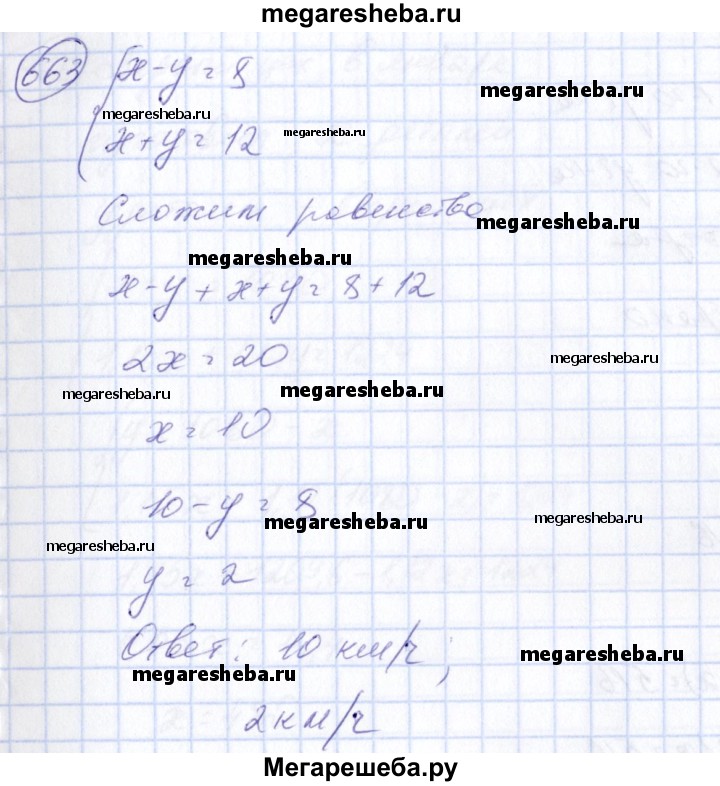 megaresheba.ru
663 x - y = 8
megaresheba.ru
megaresheba.ru
x + y = 12
megaresheba.ru
Сложим равенство
megaresheba.ru
megaresheba.ru
x - y + x + y = 8 + 12
2x = 20
megaresheba.ru
megaresheba.ru
megaresheba.ru
x = 10
10 - y = 8
megaresheba.ru
megaresheba.ru
megaresheba.ru
y = 2
Ответ: 10 км/ч;
megaresheba.ru
megaresheba.ru
2 км/ч
Мегарешеба.ру